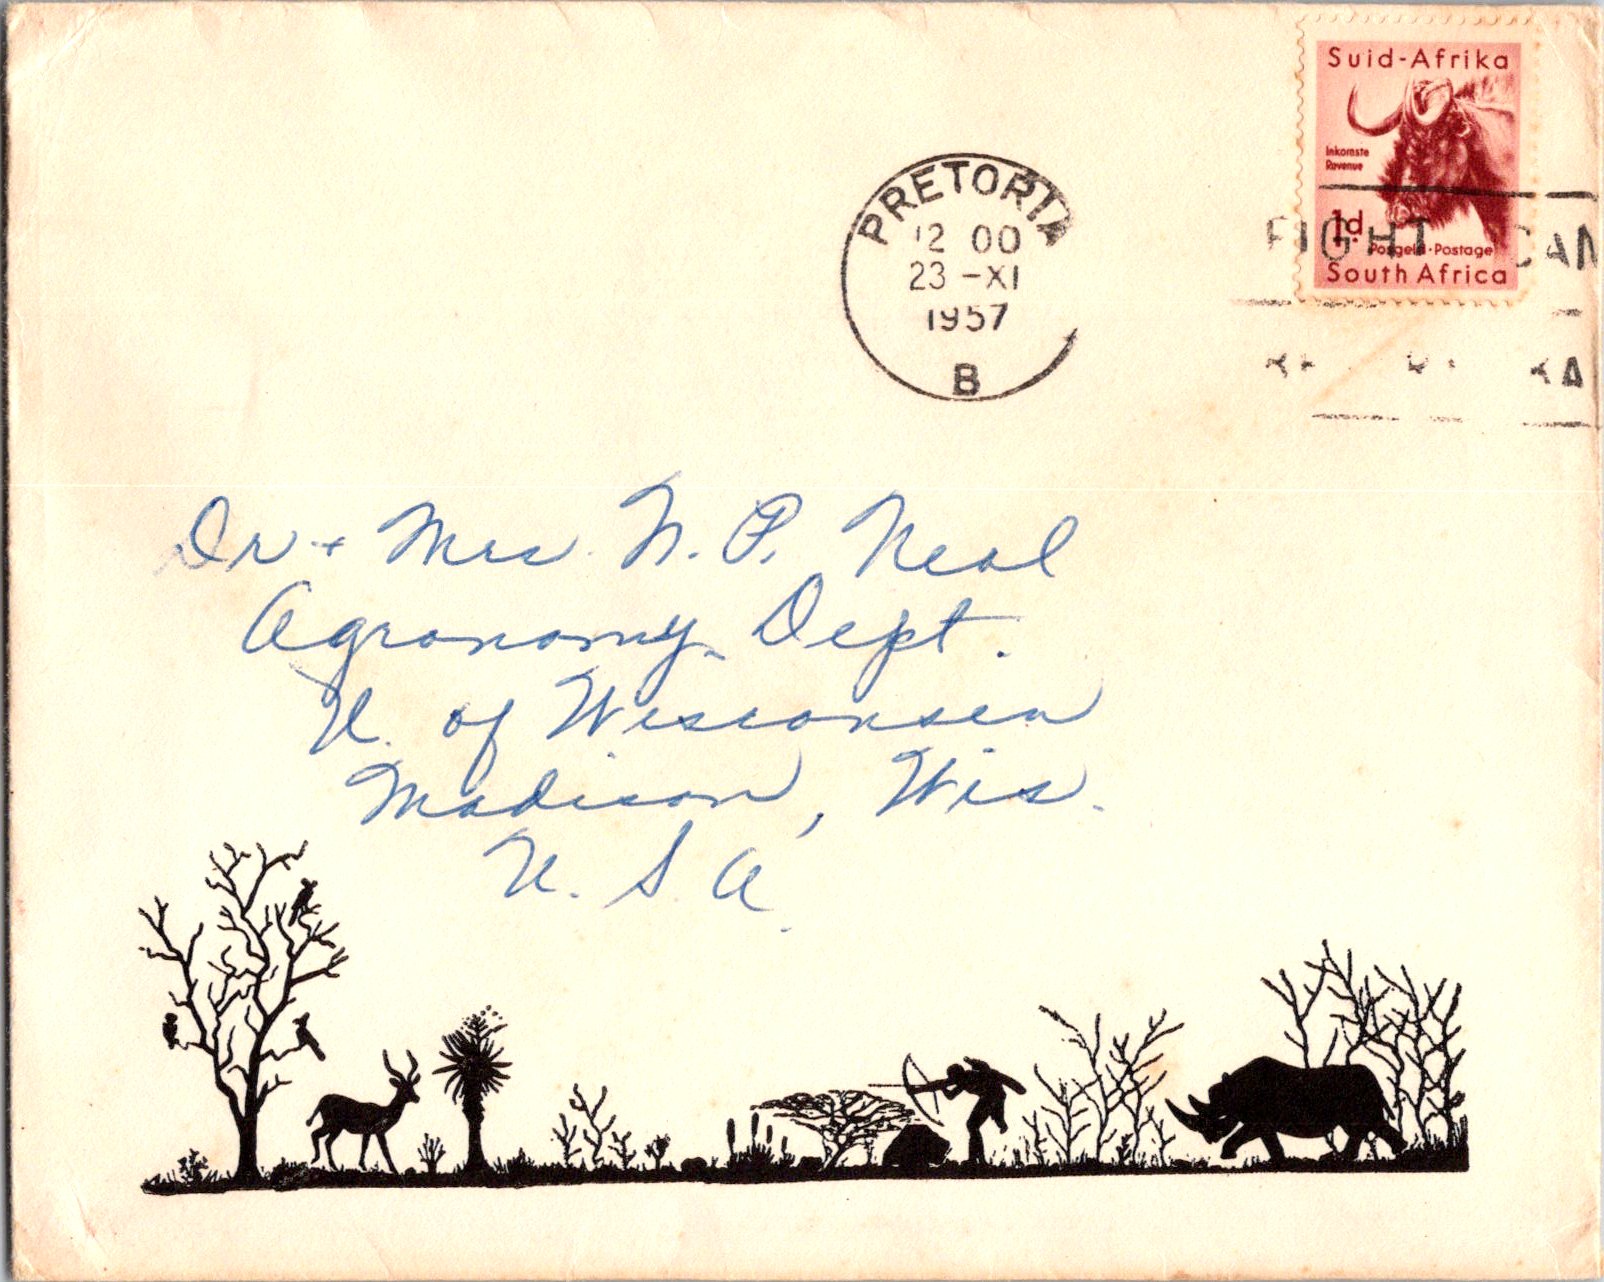 Suid-Afrika
Inkomste
Revenue
1d.
Posgeld·Postage
South Africa
PRETORIA
12 00
23 -XI
1957
B
FIGHT CAN
Dr + Mrs. N. P. Neal
Agronomy Dept.
U. of Wisconsin
Madison, Wis.
U. S. A.